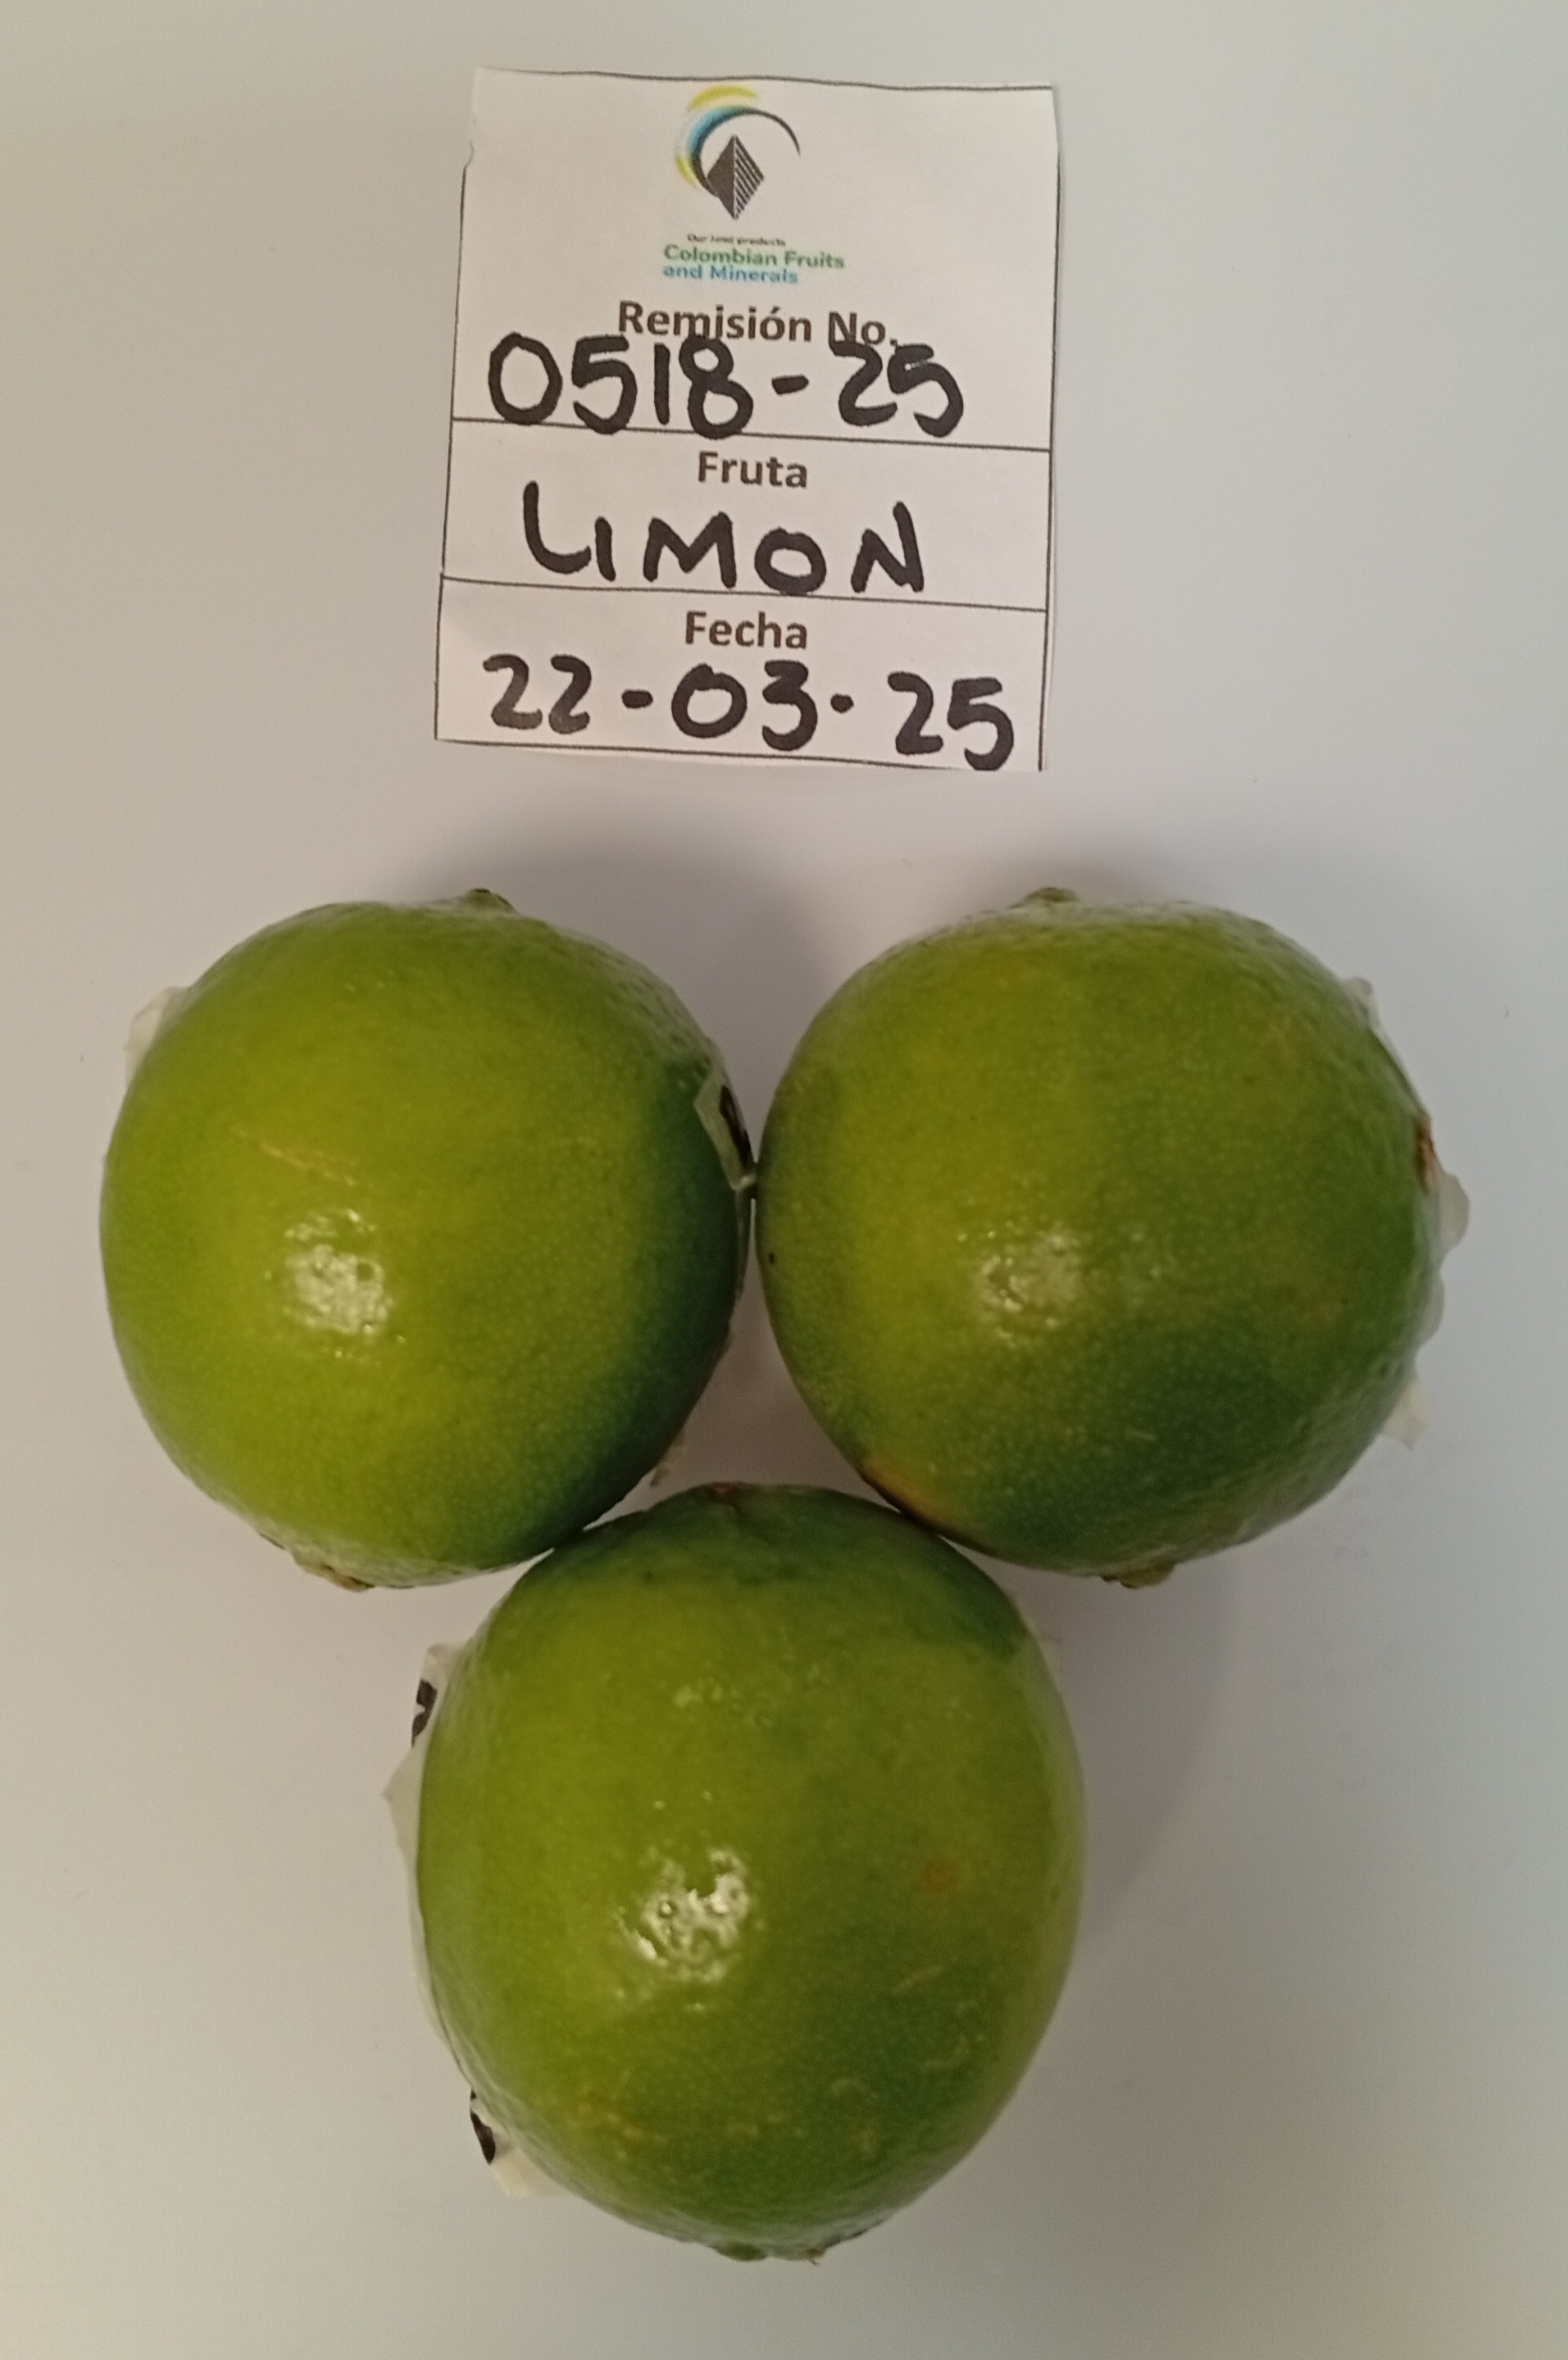 Our land products
Colombian Fruits
and Minerals
Remisión No.
0518-25
Fruta
LIMON
Fecha
22-03-25